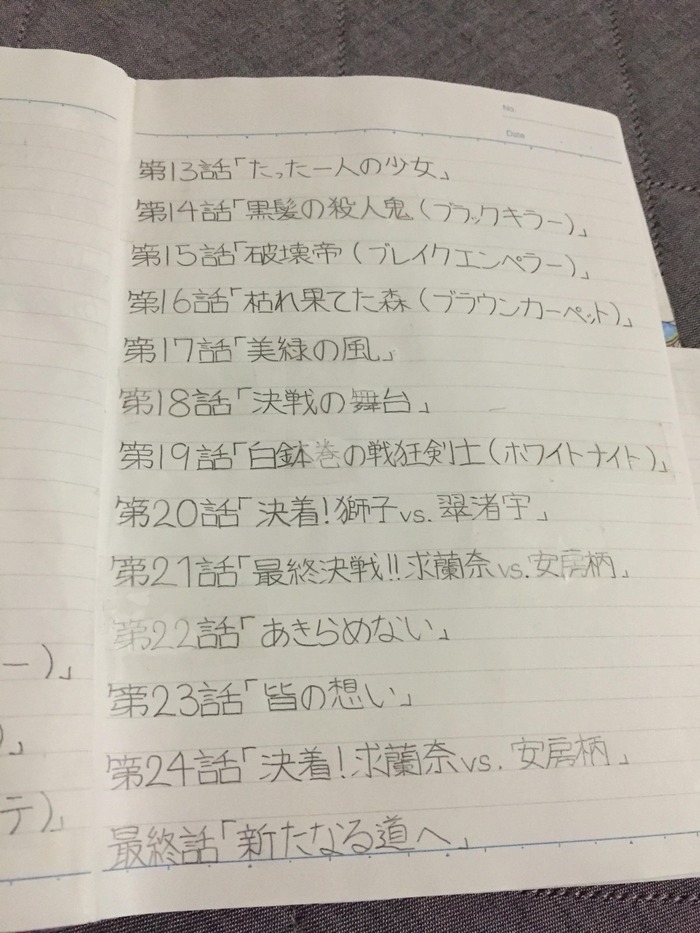 No.
Date
第13話「たった一人の少女」
第14話「黒髪の殺人鬼(ブラックキラー)」
第15話「破壊帝(ブレイクエンペラー)」
第16話「枯れ果てた森(ブラウンカーペット)」
第17話「美緑の風」
第18話「決戦の舞台」
第19話「白鉢巻の戦狂剣士(ホワイトナイト)」
第20話「決着!獅子vs.翠渚宇」
第21話「最終決戦!!求蘭奈vs.安房柄」
第22話「あきらめない」
第23話「皆の想い」
第24話「決着!求蘭奈vs.安房柄」
最終話「新たなる道へ」
ー)」
)」
テ)」